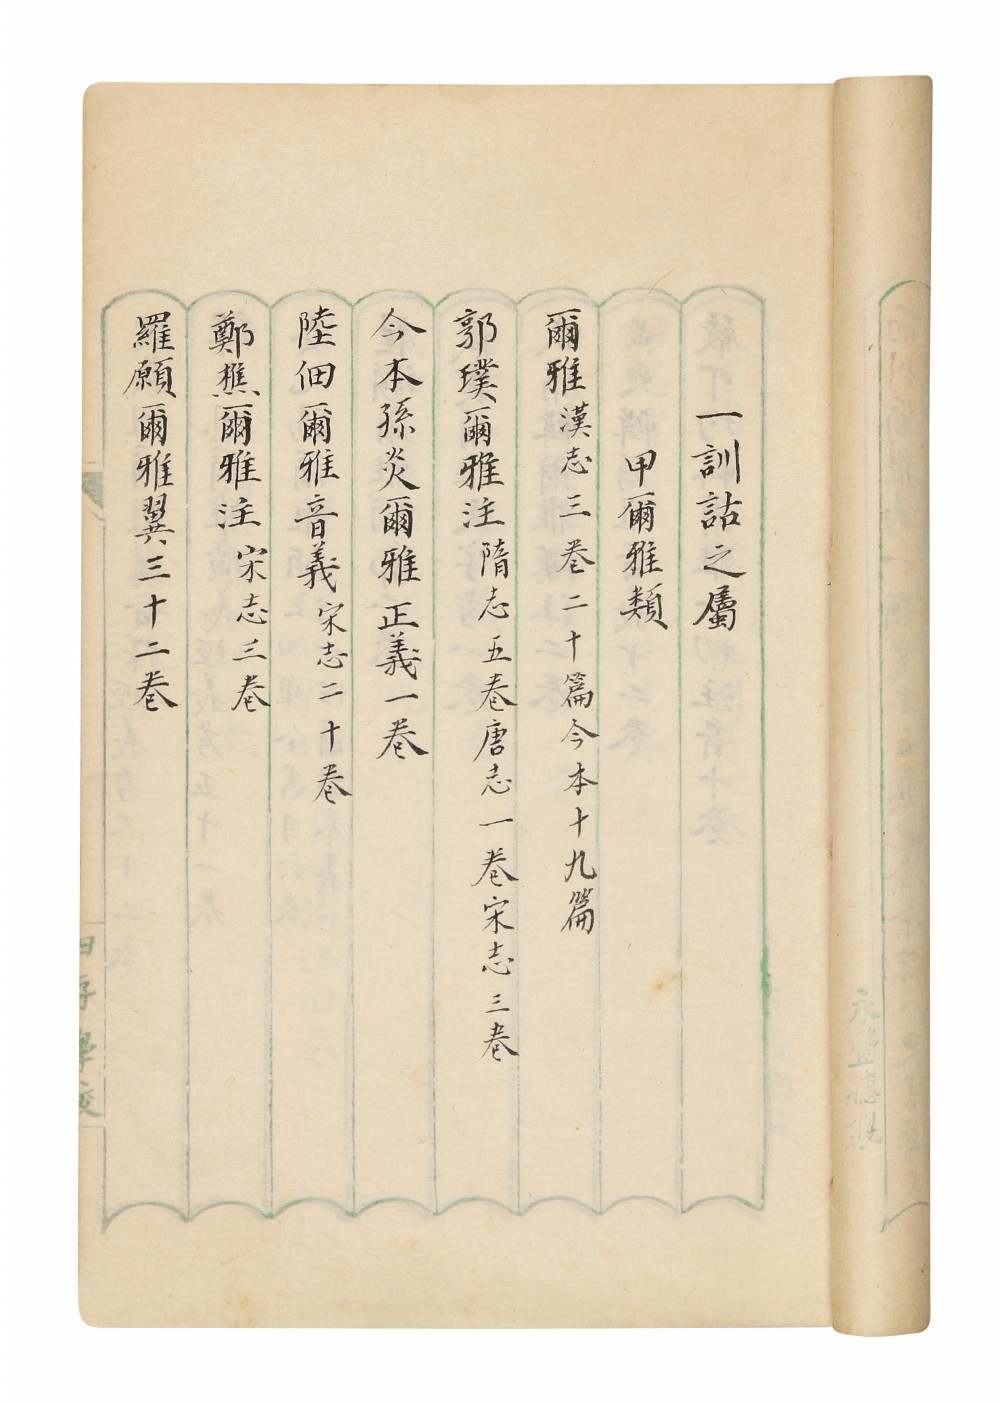 一訓詁之屬
甲爾雅類
爾雅漢志三卷二十篇今本十九篇
郭璞爾雅注隋志五卷唐志一卷宋志三卷
今本孫炎爾雅正義一卷
陸佃爾雅音義宋志二十卷
鄭樵爾雅注宋志三卷
羅願爾雅翼三十二卷
四存學校